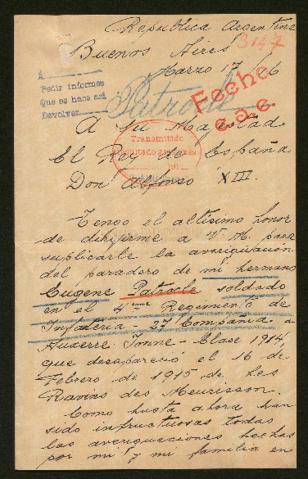 Republica Argentina
Buenos Aires
3147
Marzo 17
A
Pedir informes
Que se hace así
Devolver
Patrocle
Feche
A Su Majestad
El Rey de España
Transmitido
Don Alfonso XIII.
Tengo el altísimo honor
de dirigirme a V. M. para
suplicarle la averiguación
del paradero de mi hermano
Eugene Patrocle soldado
en el 4me Regimiento de
Infateria - 27 Compañia a
Auxerre Yonne - Clase 1914,
que desapareció el 16 de
Febrero de 1915 de Les
Ravins des Meurisson.
Como hasta ahora han
sido infructuosas todas
las averiguaciones hechas
por mi y mi familia en